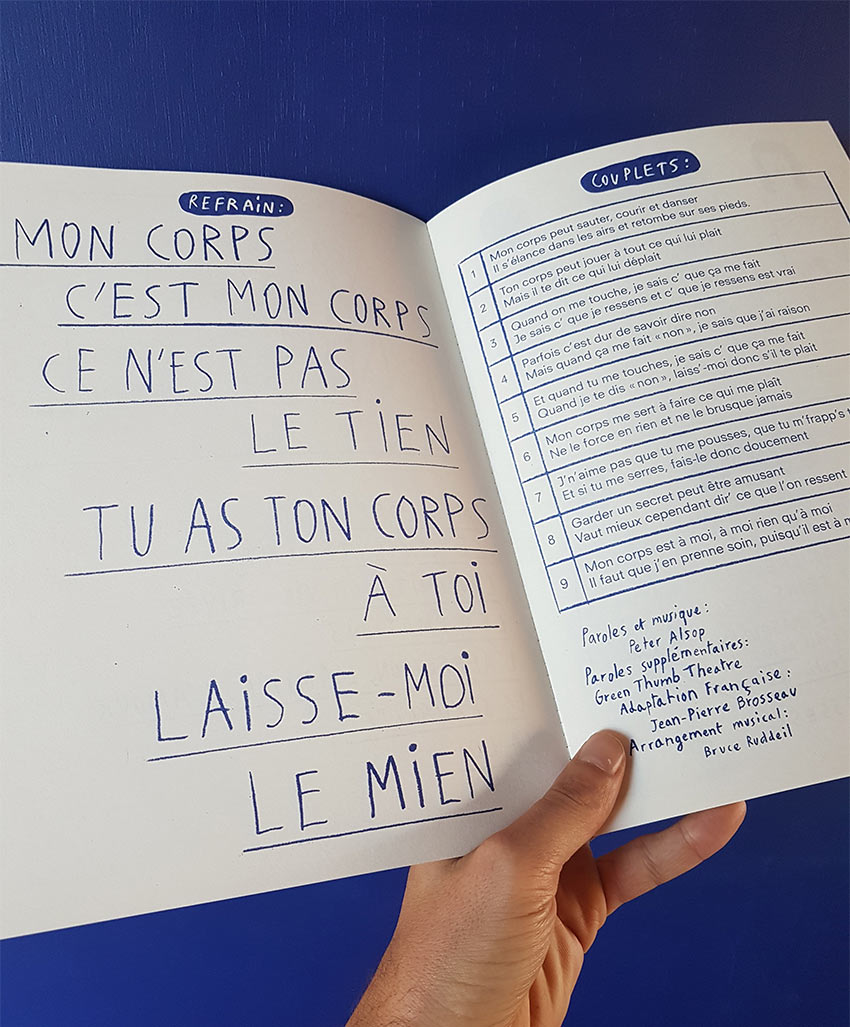 REFRAIN:
MON CORPS
C'EST MON CORPS
CE N'EST PAS
LE TIEN
TU AS TON CORPS
À TOI
LAISSE-MOI
LE MIEN
COUPLETS:
1 Mon corps peut sauter, courir et danser
Il s'élance dans les airs et retombe sur ses pieds.
2 Ton corps peut jouer à tout ce qui lui plait
Mais il te dit ce qui lui déplait
3 Quand on me touche, je sais c' que ça me fait
Je sais c' que je ressens et c' que je ressens est vrai
4 Parfois c'est dur de savoir dire non
Mais quand ça me fait « non », je sais que j'ai raison
5 Et quand tu me touches, je sais c' que ça me fait
Quand je te dis « non », laiss'-moi donc s'il te plait
6 Mon corps me sert à faire ce qui me plaît
Ne le force en rien et ne le brusque jamais
7 J'n'aime pas que tu me pousses, que tu m'frapp's
Et si tu me serres, fais-le donc doucement
8 Garder un secret peut être amusant
Vaut mieux cependant dir' ce que l'on ressent
9 Mon corps est à moi, à moi rien qu'à moi
Il faut que j'en prenne soin, puisqu'il est à
Paroles et musique:
Peter Alsop
Paroles supplémentaires:
Green Thumb Theatre
Adaptation Française:
Jean-Pierre Brosseau
Arrangement musical:
Bruce Ruddeil